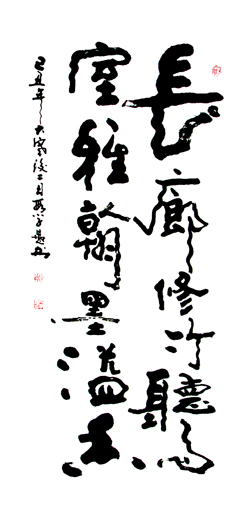 長廊修竹聽鳥
室雅翰墨溢香
己丑年大寒後二日